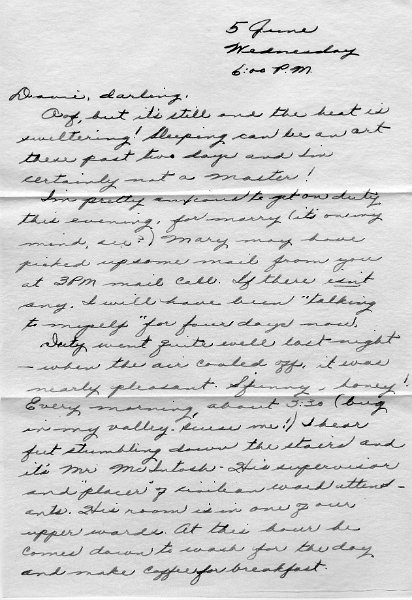 5 June
Wednesday
6:00 P.M.
darling,
Oof, but it's still and the heat is
sweltering! Sleeping can be an art
these past two days and I'm
certainly not a master!
I'm pretty anxious to get on duty
this evening, for marry (it's on my
mind, see?) Mary may have
picked up some mail from you
at 3PM mail call. If there isn't
any, I will have been "talking
to myself" for four days now.
Duty went quite well last night
- when the air cooled off, it was
nearly pleasant. Sfunny, honey!
Every morning, about 3:30 (bug
in my valley. Scuse me!) I hear
feet stumbling down the stairs and
it's Mr. McIntosh - His supervisor
and "placer" of civilian ward attend-
ants. His room is in one of our
upper wards. At this hour he
comes down to wash for the day
and make coffee for breakfast.